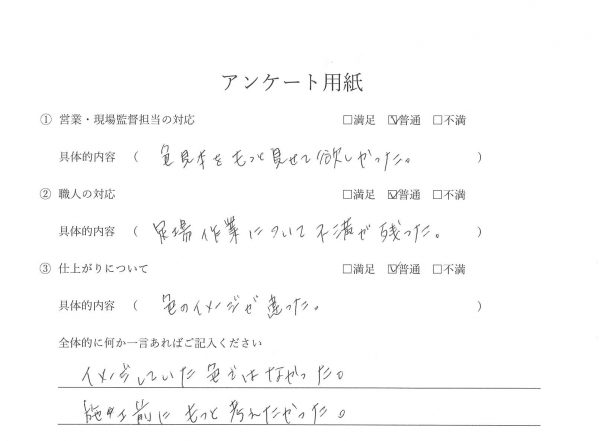 アンケート用紙
① 営業・現場監督担当の対応 □満足 ☑普通 □不満
具体的内容 （ 色見本をもっと見せて欲しかった。 ）
② 職人の対応 □満足 ☑普通 □不満
具体的内容 （ 足場作業について不満が残った。 ）
③ 仕上がりについて □満足 ☑普通 □不満
具体的内容 （ 色のイメージが違った。 ）
全体的に何か一言あればご記入ください
イメージしていた色ではなかった。
施工前にもっと考えたかった。